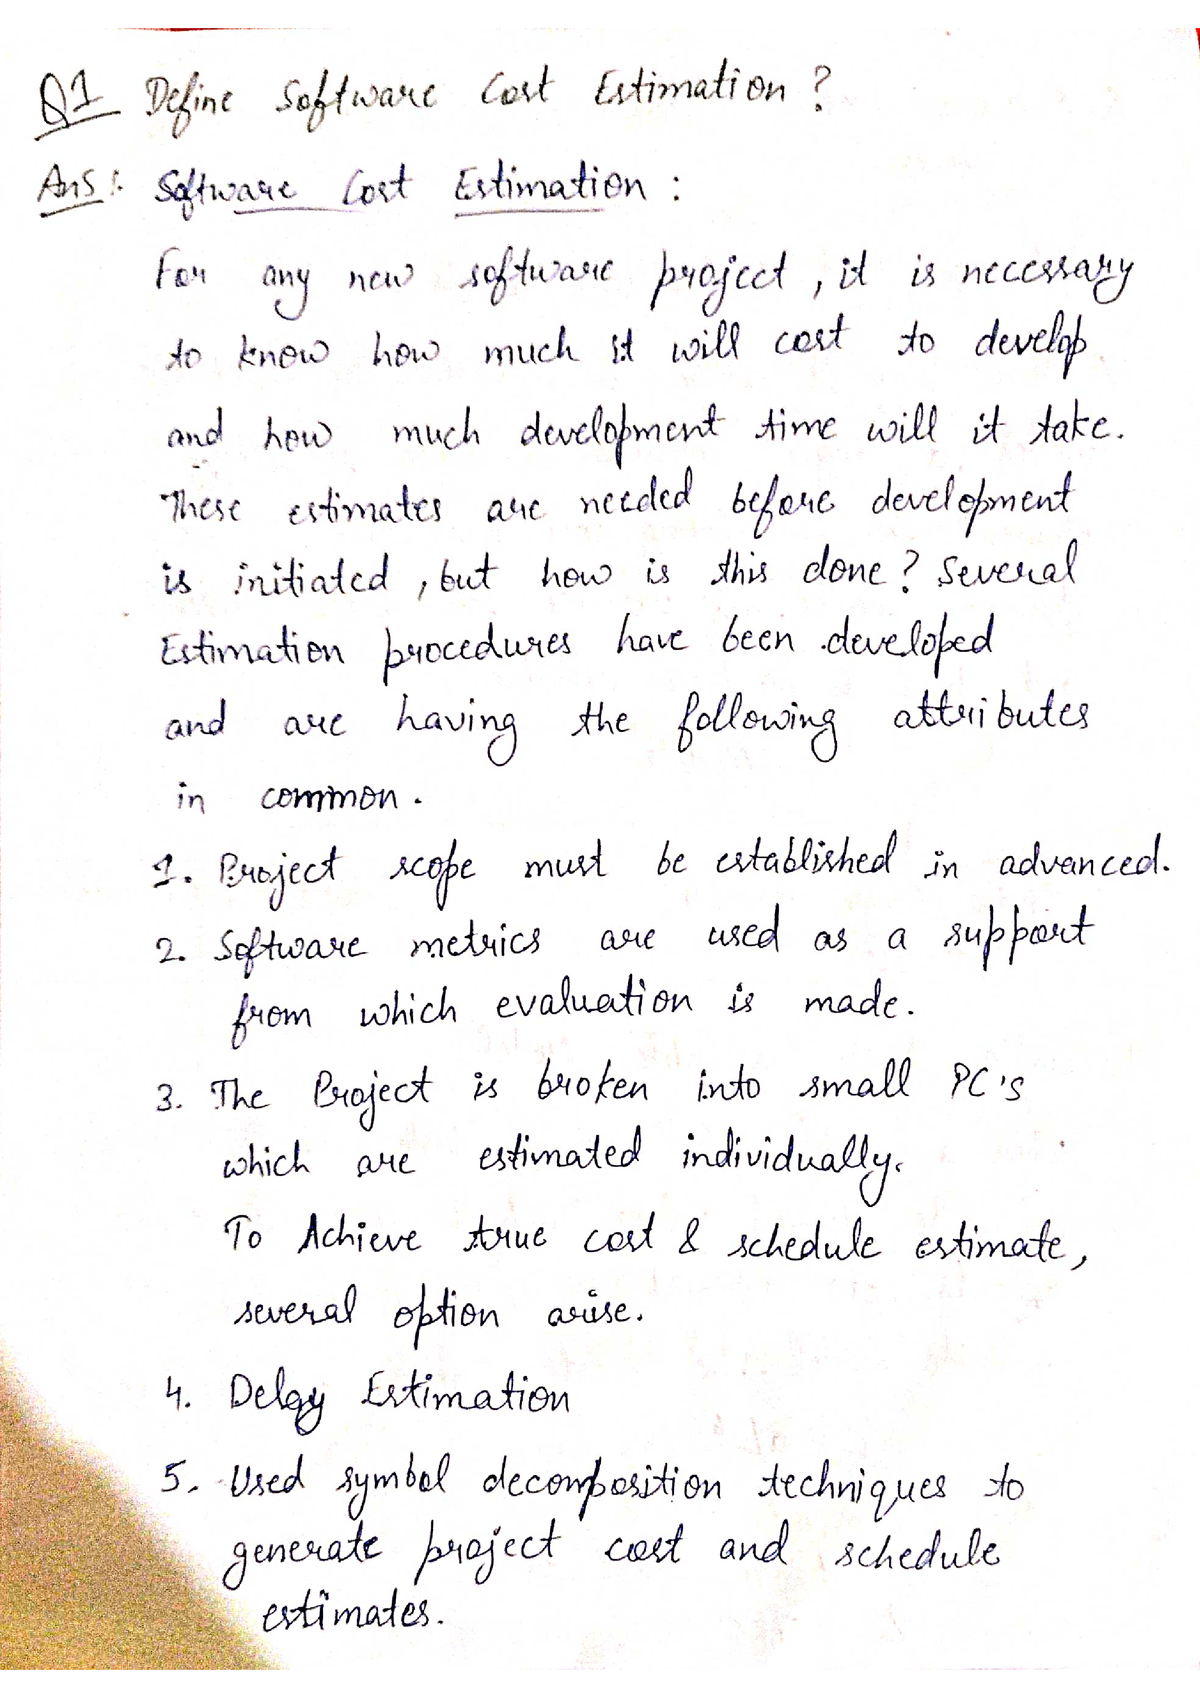 Q1 Define Software Cost Estimation ?
Ans : Software Cost Estimation :
For any new software project , it is necessary
to know how much it will cost to develop
and how much development time will it take.
These estimates are needed before development
is initiated , but how is this done ? Several
Estimation procedures have been developed
and are having the following attributes
in common .
1. Project scope must be established in advanced.
2. Software metrics are used as a support
from which evaluation is made.
3. The Project is broken into small PC's
which are estimated individually.
To Achieve true cost & schedule estimate,
several option arise.
4. Delay Estimation
5. Used symbol decomposition techniques to
generate project cost and schedule
estimates.